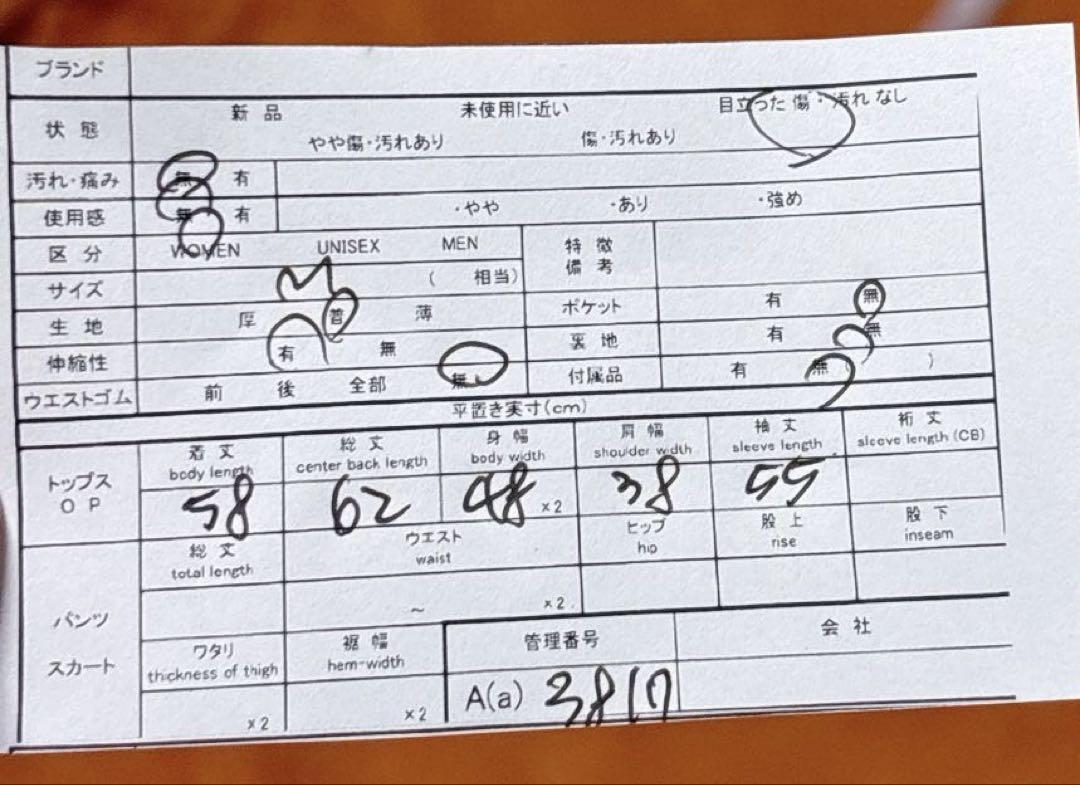 ブランド
状態 新品 未使用に近い 目立った傷・汚れなし
やや傷・汚れあり 傷・汚れあり
汚れ・痛み 無 有
使用感 無 有 ・やや ・あり ・強め
区分 WOMEN UNISEX MEN 特徴備考
サイズ M ( 相当)
生地 厚 普 薄 ポケット 有 無
伸縮性 有 無 裏地 有 無
ウエストゴム 前 後 全部 無 付属品 有 無( )
平置き実寸(cm)
トップス OP
着丈 総丈 身幅 肩幅 袖丈 裄丈
body length center back length body width shoulder width sleeve length sleeve length (CB)
58 62 48 ×2 38 55
パンツ スカート
総丈 ウエスト ヒップ 股上 股下
total length waist hip rise inseam
~ ×2
ワタリ 裾幅 管理番号 会社
thickness of thigh hem-width
×2 ×2 A(a) 3817